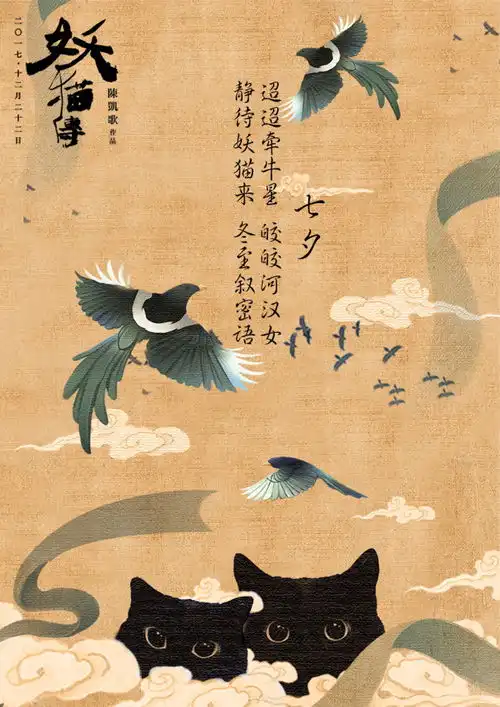 二〇一七·十二月二十二日
妖猫傳
陳凱歌 作品
七夕
迢迢牵牛星 皎皎河汉女
静待妖猫来 冬至叙密语